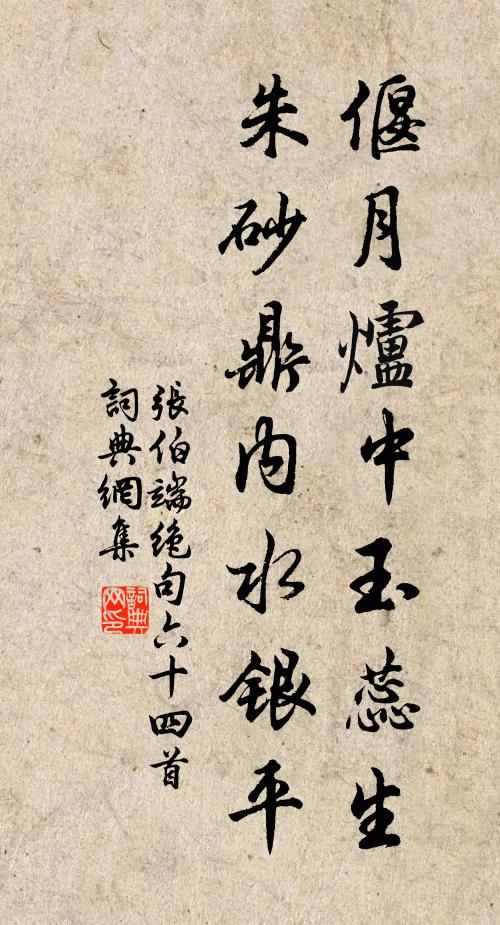 偃月爐中玉蕊生
朱砂鼎內水銀平
張伯端絶句六十四首
詞典網集
詞典网印